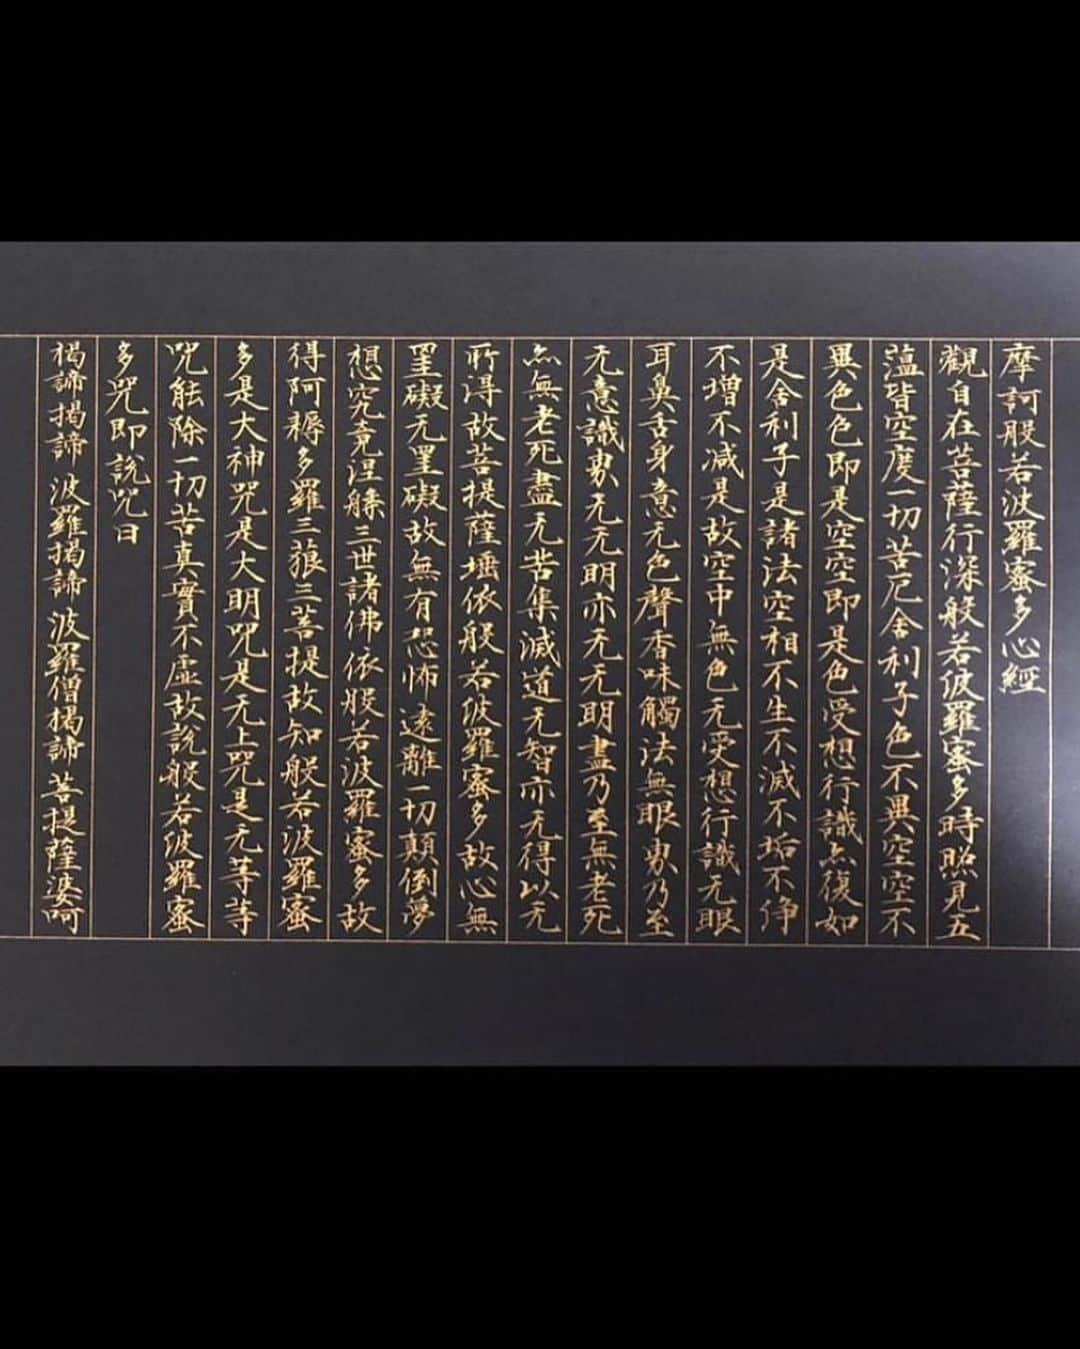 摩訶般若波羅蜜多心經
觀自在菩薩行深般若波羅蜜多時照見五
蘊皆空度一切苦厄舍利子色不異空空不
異色色即是空空即是色受想行識亦復如
是舍利子是諸法空相不生不滅不垢不淨
不增不減是故空中無色无受想行識无眼
耳鼻舌身意无色聲香味觸法無眼界乃至
无意識界无无明亦无无明盡乃至無老死
亦無老死盡无苦集滅道无智亦无得以无
所得故菩提薩埵依般若波羅蜜多故心無
罣礙无罣礙故無有恐怖遠離一切顛倒夢
想究竟涅槃三世諸佛依般若波羅蜜多故
得阿耨多羅三藐三菩提故知般若波羅蜜
多是大神咒是大明咒是无上咒是无等等
咒能除一切苦真實不虛故說般若波羅蜜
多咒即說咒曰
揭諦揭諦 波羅揭諦 波羅僧揭諦 菩提薩婆呵